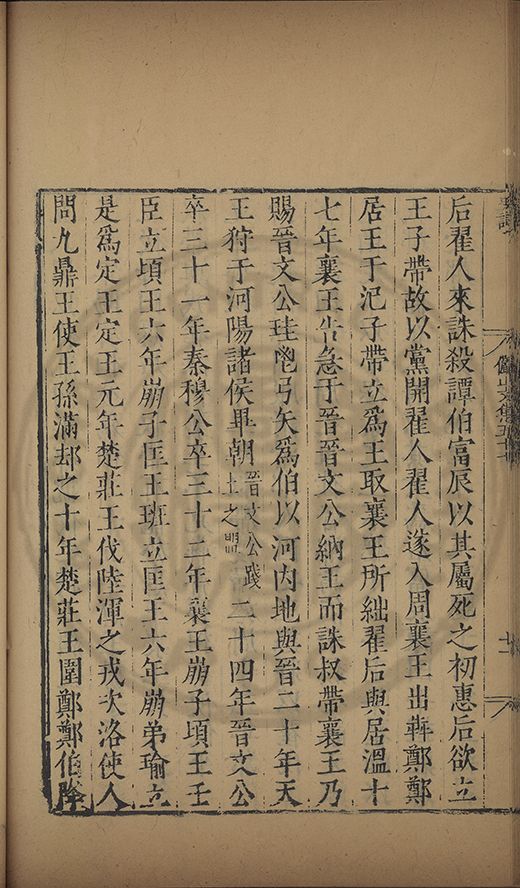 后翟人來誅殺譚伯富辰以其屬死之初惠后欲立
王子帶故以黨開翟人翟人遂入周襄王出奔鄭鄭
居王于氾子帶立爲王取襄王所絀翟后與居溫十
七年襄王告急于晉晉文公納王而誅叔帶襄王乃
賜晉文公珪鬯弓矢爲伯以河內地與晉二十年天
王狩于河陽諸侯畢朝晉文公踐土之盟二十四年晉文公
卒三十一年秦穆公卒三十二年襄王崩子頃王壬
臣立頃王六年崩子匡王班立匡王六年崩弟瑜立
是爲定王定王元年楚莊王伐陸渾之戎次洛使人
問九鼎王使王孫滿却之十年楚莊王圍鄭鄭伯降